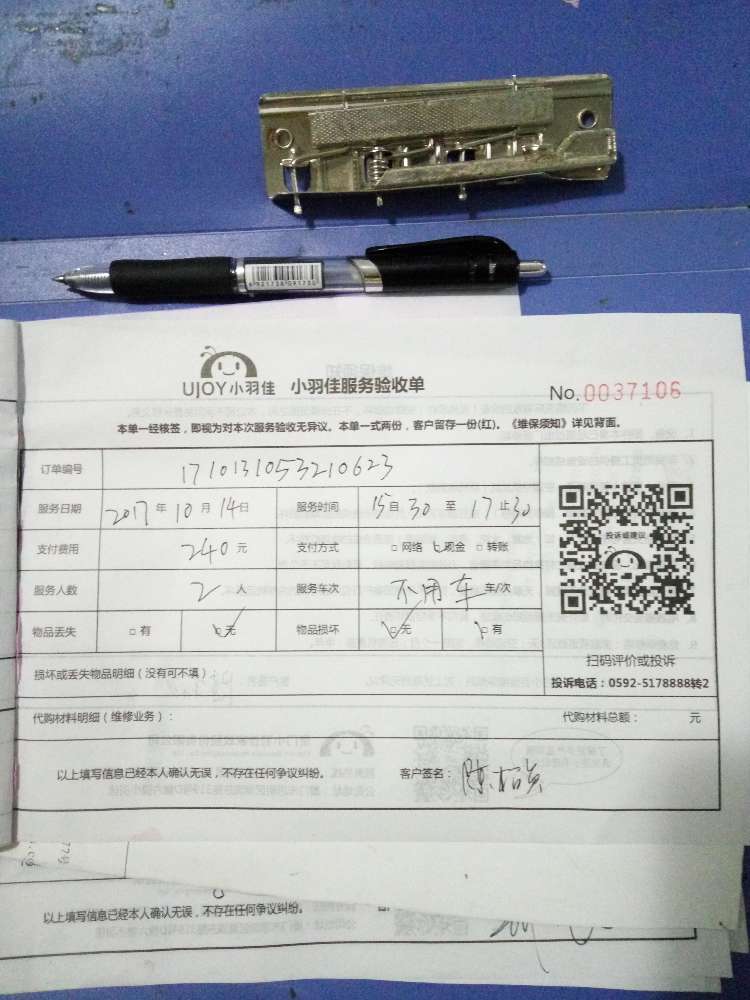 6921738091730
UJOY小羽佳 小羽佳服务验收单 No.0037106
本单一经核签，即视为对本次服务验收无异议。本单一式两份，客户留存一份(红)。《维保须知》详见背面。
订单编号 1710131053210623
服务日期 2017年10月14日 服务时间 15自30至17止30
支付费用 240元 支付方式 □网络 ☑现金 □转账
服务人数 2人 服务车次 不用车 车/次
物品丢失 □有 ☑无 物品损坏 ☑无 □有
损坏或丢失物品明细（没有可不填）：
投诉或建议
扫码评价或投诉
投诉电话：0592-5178888转2
代购材料明细（维修业务）： 代购材料总额： 元
以上填写信息已经本人确认无误，不存在任何争议纠纷。 客户签名：陈
以上填写信息已经本人确认无误，不存在任何争议纠纷。